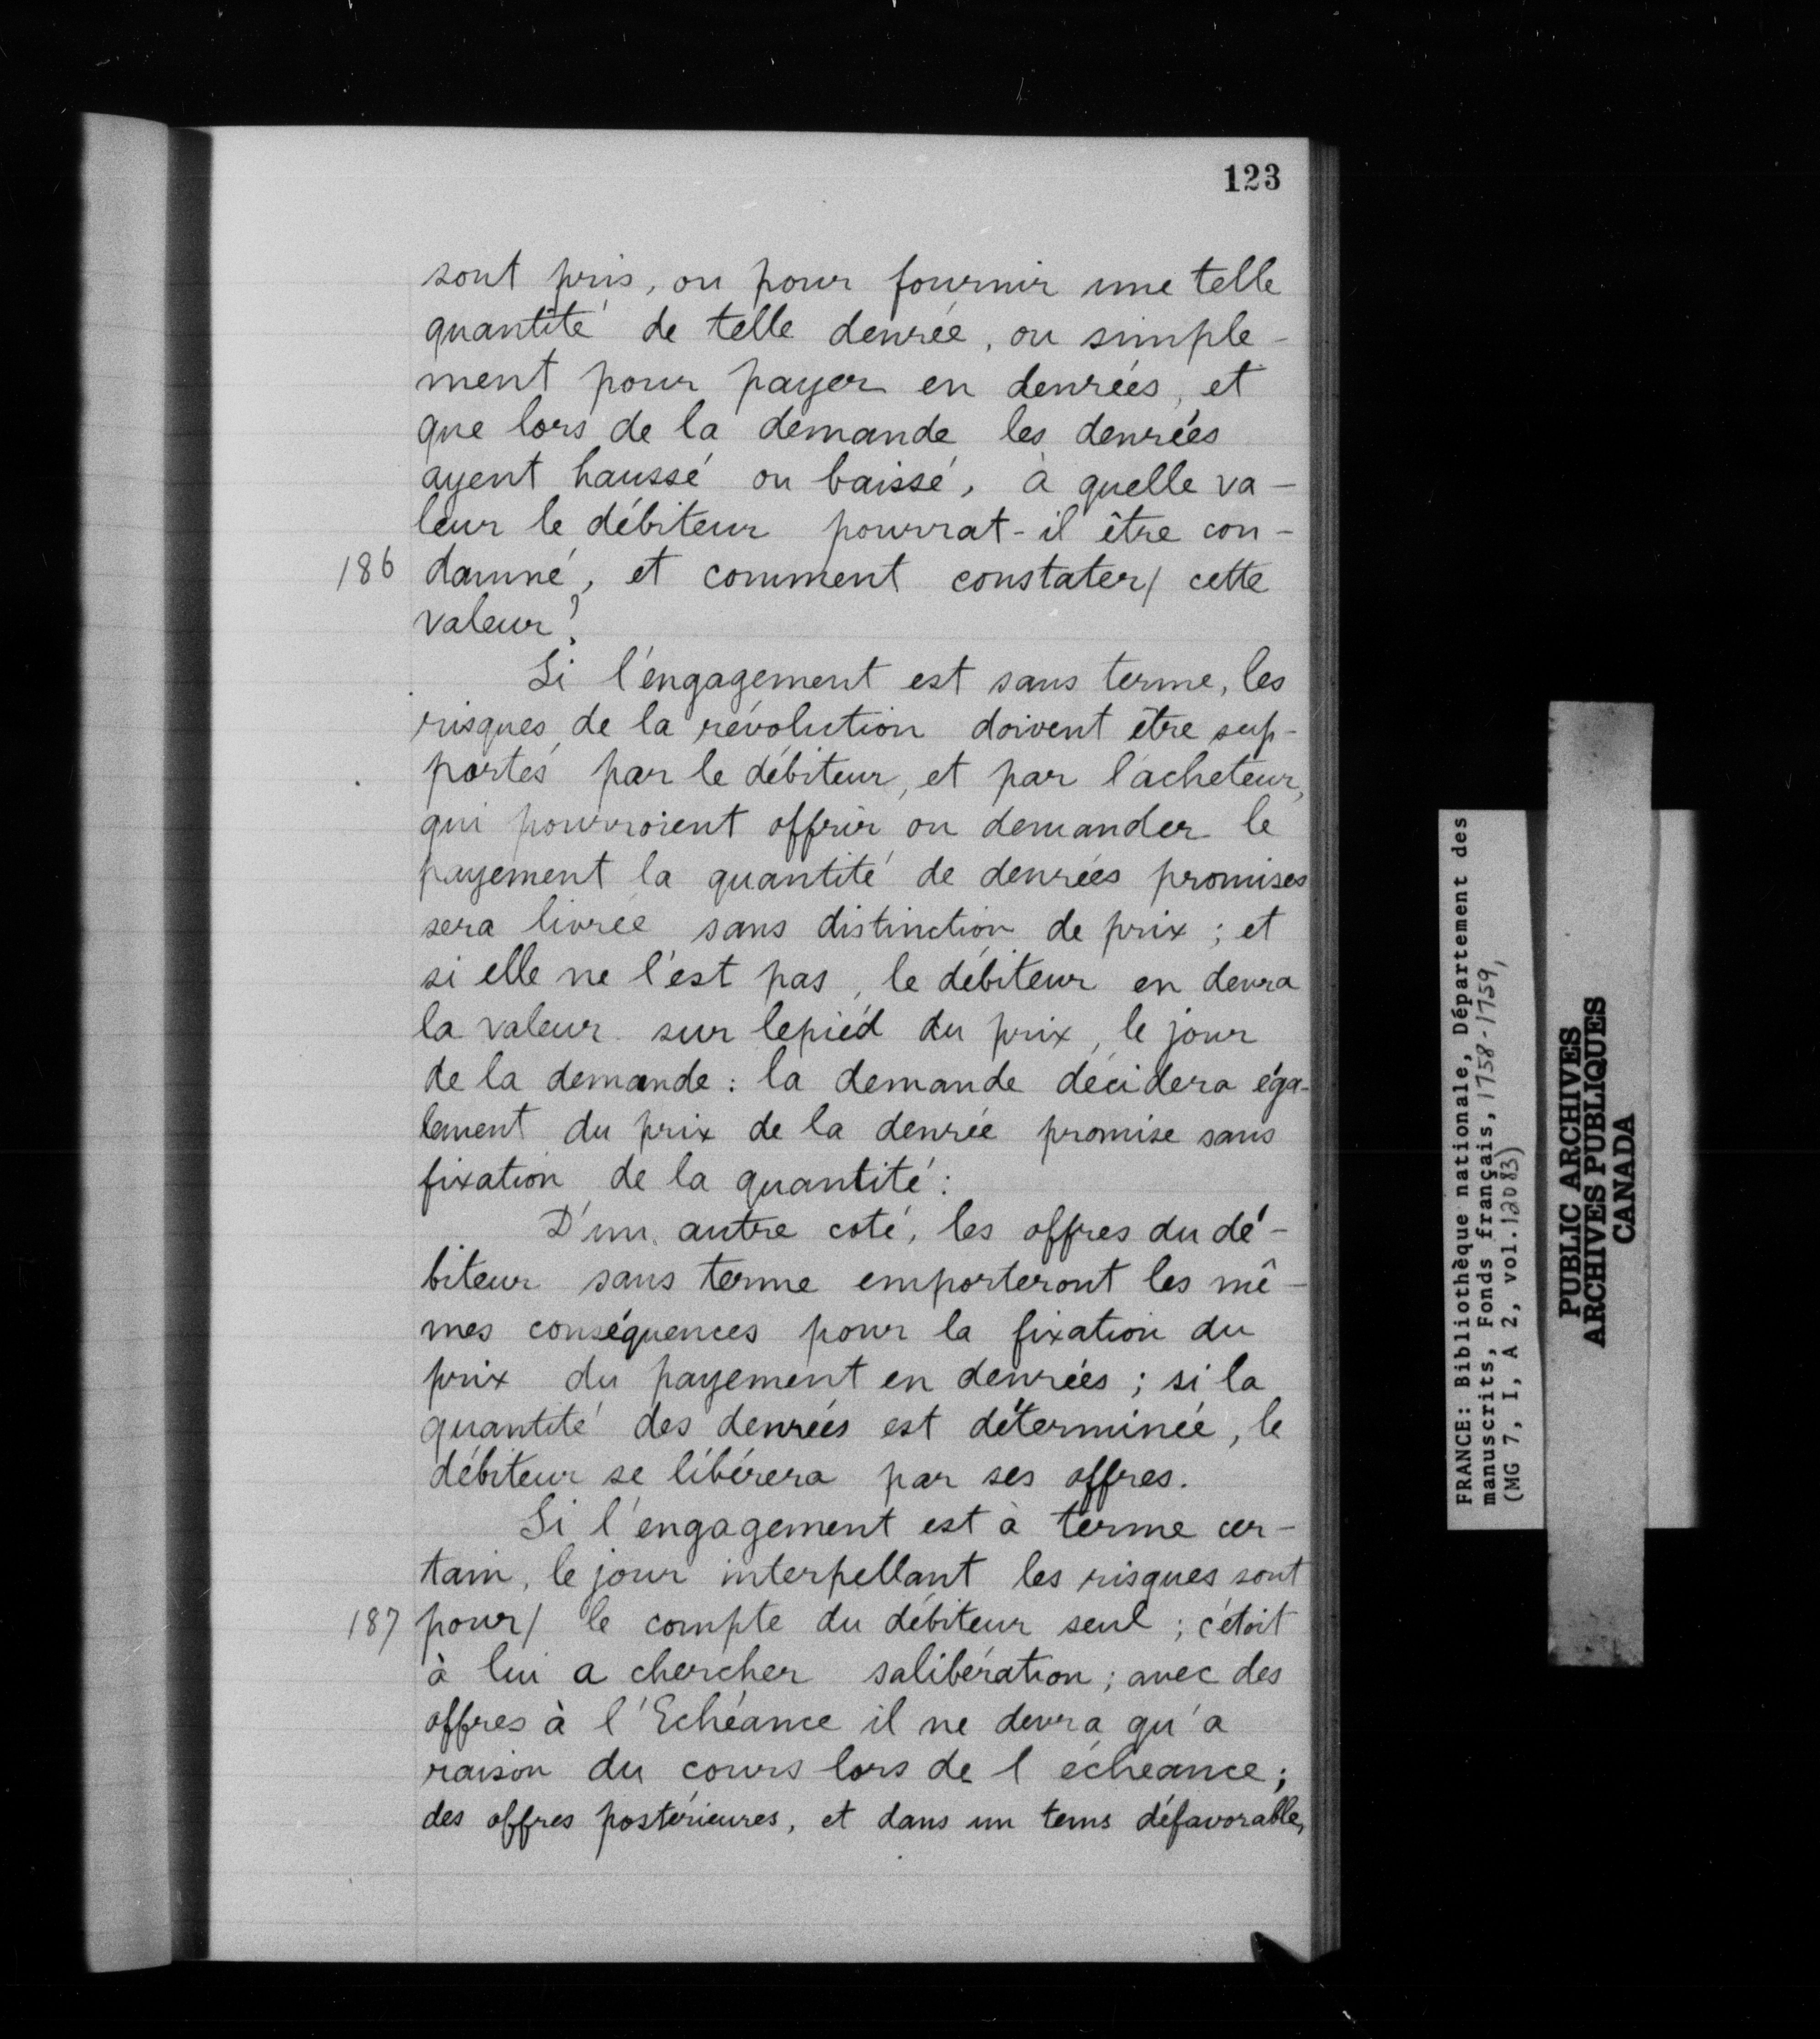 123
sont pris, ou pour fournir une telle
quantité de telle denrée, ou simple-
ment pour payer en denrées, et
que lors de la demande les denrées
ayent haussé ou baissé, à quelle va-
leur le débiteur pourrat-il être con-
186 damné, et comment constater/ cette
valeur?
Si l'engagement est sans terme, les
risques de la révolution doivent être sup-
portés par le débiteur, et par l'acheteur,
qui pourroient offrir ou demander le
payement la quantité de denrées promises
sera livrée sans distinction de prix ; et
si elle ne l'est pas, le débiteur en devra
la valeur sur lepiéd du prix, le jour
de la demande : la demande décidera éga-
lement du prix de la denrée promise sans
fixation de la quantité :
D'un autre coté, les offres du dé-
biteur sans terme emporteront les mê-
mes conséquences pour la fixation du
prix du payement en denrées ; si la
quantité des denrées est déterminée, le
débiteur se libérera par ses offres.
Si l'engagement est à terme cer-
tain, le jour interpellant les risques sont
187 pour/ le compte du débiteur seul ; c'étoit
à lui a chercher salibération ; avec des
offres à l'Echéance il ne devra qu'a
raison du cours lors de l échéance ;
des offres postérieures, et dans un tems défavorable,
FRANCE: Bibliothèque nationale, Département des
manuscrits, Fonds français, 1758-1759,
(MG 7, I, A 2, vol. 12083)
PUBLIC ARCHIVES
ARCHIVES PUBLIQUES
CANADA